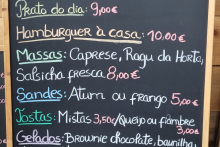 Prato do dia: 9,00€
Hamburguer à casa: 10.00€
Massas: Caprese, Ragu da Horta,
Salsicha fresca 8,00€
Sandes: Atum ou frango 5,00€
Tostas: Mistas 3,50€/Queijo ou fiambre
3,00€
Gelados: Brownie chocolate, baunilha,